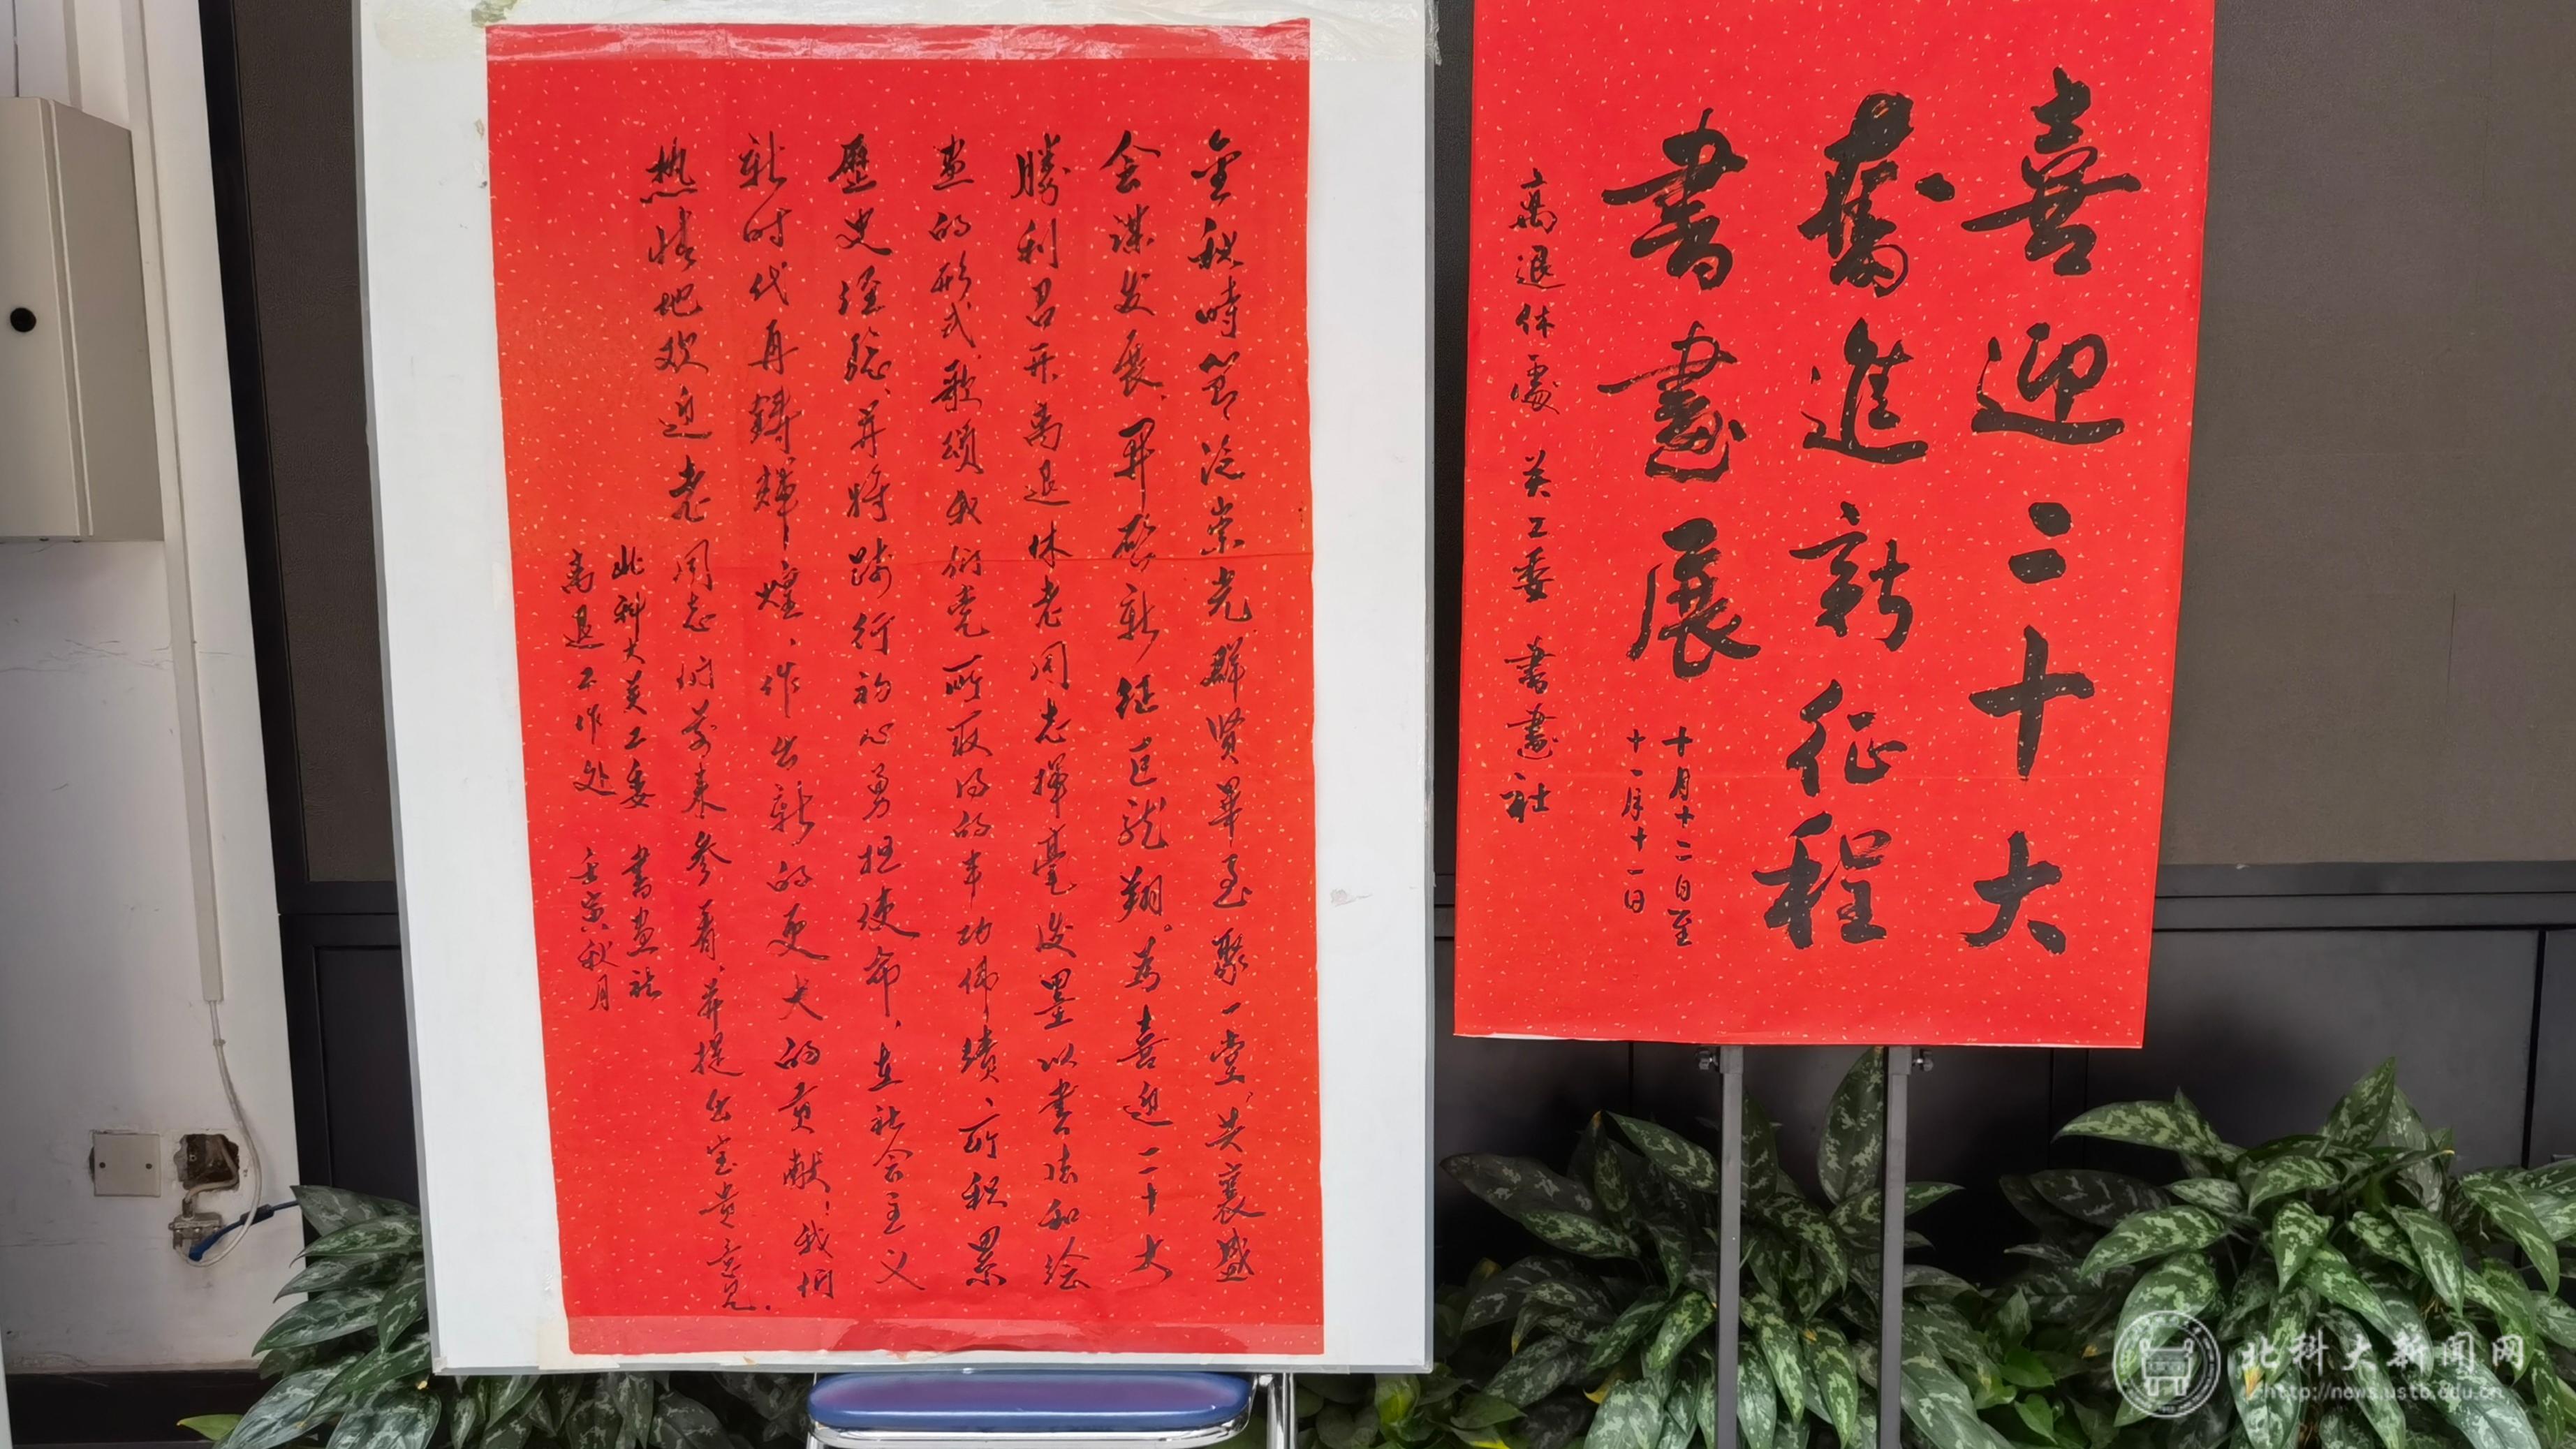 喜迎二十大
奮進新征程
書畫展
十月十二日至
十一月十一日
离退休處 关工委 書畫社
金秋時节泛崇光,群贤畢至聚一堂,共襄盛
会谋发展,开啟新征巨龙翔。為喜迎二十大
勝利召开离退休老同志揮毫泼墨以書法和绘
画的形式歌頌我们党所取得的丰功偉績、所积累
歷史经驗,并将践行初心勇担使命,在社会主义
新时代再鑄輝煌,作出新的更大的贡献!我们
热情地欢迎老同志们前来参看,并提出宝贵意见.
北科大关工委 書画社
离退工作处 壬寅秋月
北科大新闻网
http://news.ustb.edu.cn